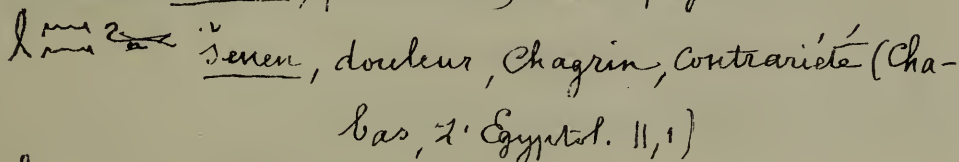 šenen, douleur, Chagrin, contrariété (Cha-
bas, L'Egyptol. II, 1)